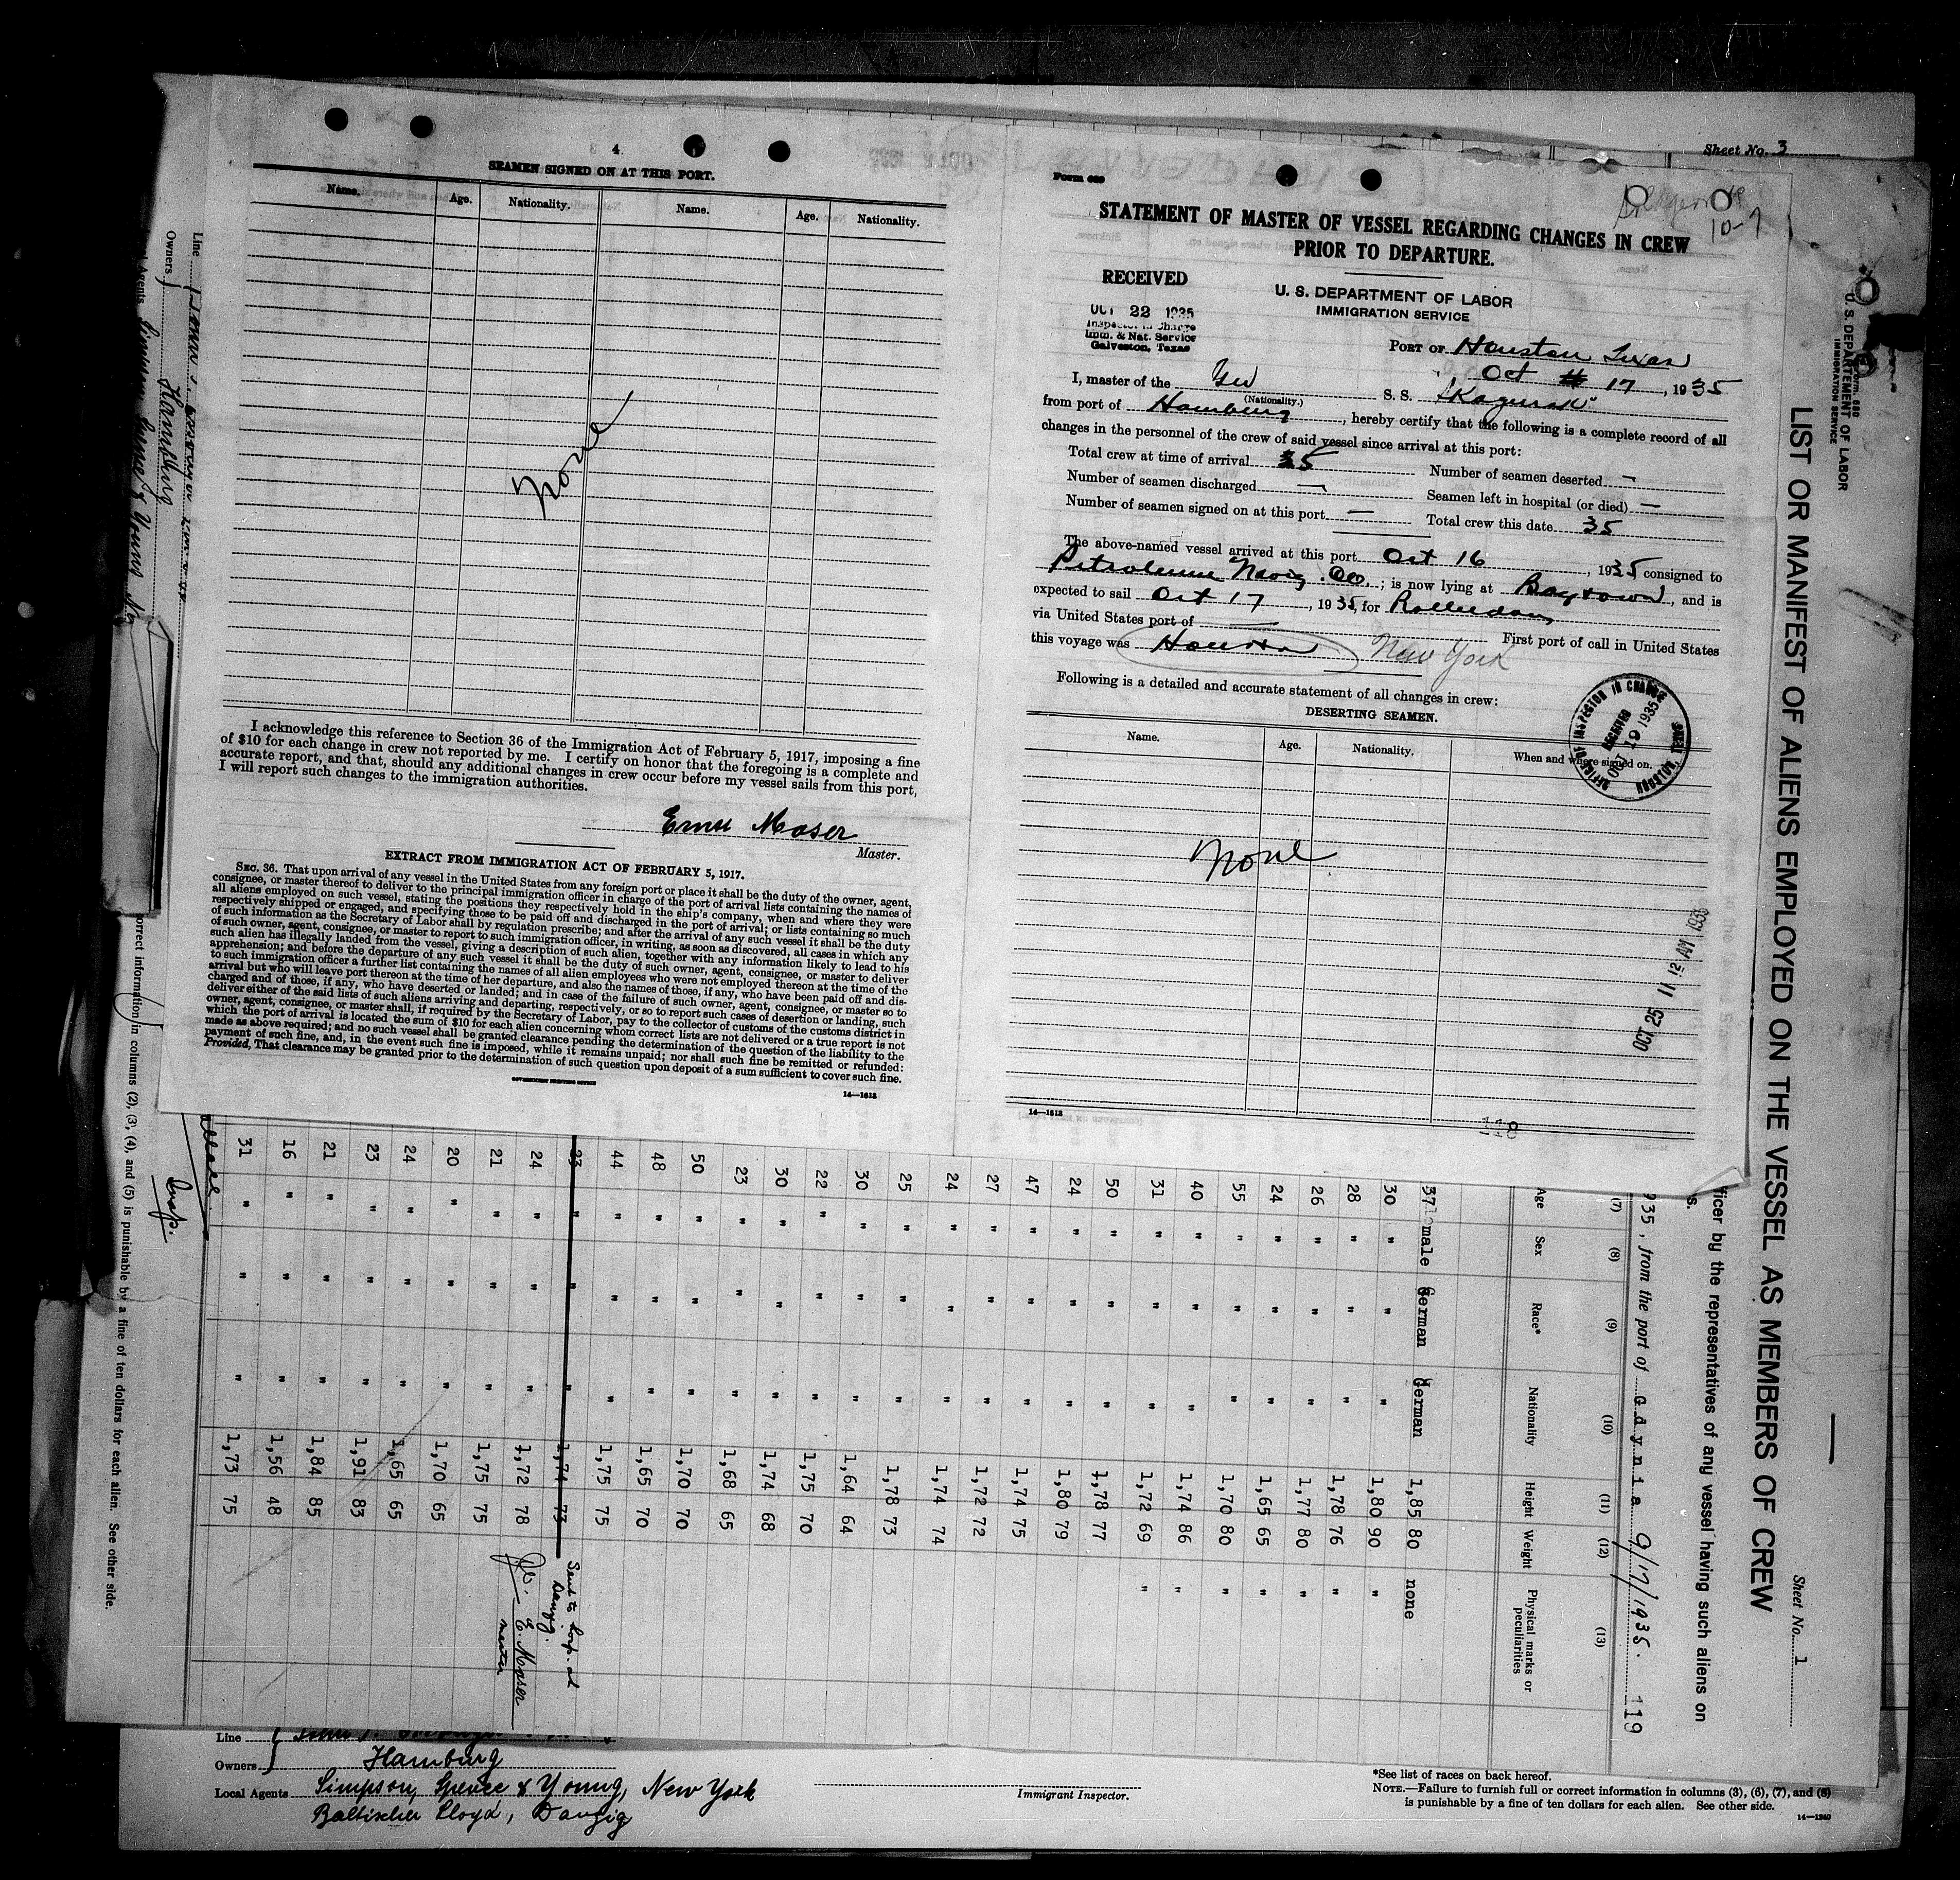 4
SEAMEN SIGNED ON AT THIS PORT.
Name. Age. Nationality. Name. Age. Nationality.
None
I acknowledge this reference to Section 36 of the Immigration Act of February 5, 1917, imposing a fine
of $10 for each change in crew not reported by me. I certify on honor that the foregoing is a complete and
accurate report, and that, should any additional changes in crew occur before my vessel sails from this port,
I will report such changes to the immigration authorities.
Ernst Moser
Master.
EXTRACT FROM IMMIGRATION ACT OF FEBRUARY 5, 1917.
SEC. 36. That upon arrival of any vessel in the United States from any foreign port or place it shall be the duty of the owner, agent,
consignee, or master thereof to deliver to the principal immigration officer in charge of the port of arrival lists containing the names of
all aliens employed on such vessel, stating the positions they respectively hold in the ship's company, when and where they were
respectively shipped or engaged, and specifying those to be paid off and discharged in the port of arrival; or lists containing so much
of such information as the Secretary of Labor shall by regulation prescribe; and after the arrival of any such vessel it shall be the duty
of such owner, agent, consignee, or master to report to such immigration officer, in writing, as soon as discovered, all cases in which any
such alien has illegally landed from the vessel, giving a description of such alien, together with any information likely to lead to his
apprehension; and before the departure of any such vessel it shall be the duty of such owner, agent, consignee, or master to deliver
to such immigration officer a further list containing the names of all alien employees who were not employed thereon at the time of the
arrival but who will leave port thereon at the time of her departure, and also the names of those, if any, who have been paid off and dis-
charged and of those, if any, who have deserted or landed; and in case of the failure of such owner, agent, consignee, or master so to
deliver either of the said lists of such aliens arriving and departing, respectively, or so to report such cases of desertion or landing, such
owner, agent, consignee, or master shall, if required by the Secretary of Labor, pay to the collector of customs of the customs district in
which the port of arrival is located the sum of $10 for each alien concerning whom correct lists are not delivered or a true report is not
made as above required; and no such vessel shall be granted clearance pending the determination of the question of the liability to the
payment of such fine, and, in the event such fine is imposed, while it remains unpaid; nor shall such fine be remitted or refunded:
Provided, That clearance may be granted prior to the determination of such question upon deposit of a sum sufficient to cover such fine.
GOVERNMENT PRINTING OFFICE
14—1618
Form 689
10-7
STATEMENT OF MASTER OF VESSEL REGARDING CHANGES IN CREW
PRIOR TO DEPARTURE.
RECEIVED
OCT 22 1935
Inspector in Charge
Imm. & Nat. Service
Galveston, Texas
U. S. DEPARTMENT OF LABOR
IMMIGRATION SERVICE
PORT OF Houston Texas
Oct 17, 1935
I, master of the Ger S. S. "Kagurah"
(Nationality.)
from port of Hamburg, hereby certify that the following is a complete record of all
changes in the personnel of the crew of said vessel since arrival at this port:
Total crew at time of arrival 35 Number of seamen deserted —
Number of seamen discharged — Seamen left in hospital (or died) —
Number of seamen signed on at this port — Total crew this date 35
The above-named vessel arrived at this port Oct 16, 1935, consigned to
Petroleum Navig. Co.; is now lying at Baytown, and is
expected to sail Oct 17, 1935, for Rotterdam
via United States port of — First port of call in United States
this voyage was Houston New York
Following is a detailed and accurate statement of all changes in crew:
DESERTING SEAMEN.
Name. Age. Nationality. When and where signed on.
OFFICE OF INSPECTOR IN CHARGE
RECEIVED
OCT 19 1935
HOUSTON
None
OCT 25 11 12 AM 1935
14—1618
Sheet No. 3
Form 680
U. S. DEPARTMENT OF LABOR
IMMIGRATION SERVICE
LIST OR MANIFEST OF ALIENS EMPLOYED ON THE VESSEL AS MEMBERS OF CREW
Sheet No. 1
officer by the representatives of any vessel having such aliens on
935, from the port of Gdynia 9/17/1935. 119
(7) (8) (9) (10) (11) (12) (13)
Age Sex Race* Nationality Height Weight Physical marks or peculiarities
37 male German German 1,85 80 none
30 " " " 1,80 90 "
28 " " " 1,78 76 "
26 " " " 1,77 80 "
24 " " " 1,65 65 "
55 " " " 1,70 80 "
40 " " " 1,74 86 "
31 " " " 1,72 69 "
50 " " " 1,78 77
24 " " " 1,80 79
47 " " " 1,74 75
27 " " " 1,72 72
24 " " " 1,74 74
25 " " " 1,78 73
30 " " " 1,64 64
22 " " " 1,75 70
30 " " " 1,74 68
23 " " " 1,68 65
50 " " " 1,70 70
48 " " " 1,65 70
44 " " " 1,75 75
23 " " " 1,74 73 Sent to hosp. at Danzig.
24 " " " 1,72 78 E. Moser
21 " " " 1,75 75 master
20 " " " 1,70 65
24 " " " 1,65 65
23 " " " 1,91 83
21 " " " 1,84 85
16 " " " 1,56 48
31 " " " 1,73 75
Insp.
correct information in columns (2), (3), (4), and (5) is punishable by a fine of ten dollars for each alien. See other side.
Line
Owners Hamburg
Agents Simpson Spence & Young N.
Line
Owners Hamburg
Local Agents Simpson, Spence & Young, New York
Baltischer Lloyd, Danzig
Immigrant Inspector.
*See list of races on back hereof.
NOTE.—Failure to furnish full or correct information in columns (3), (6), (7), and (8)
is punishable by a fine of ten dollars for each alien. See other side.
14—1240